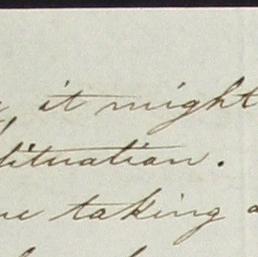 it might
situation.
taking